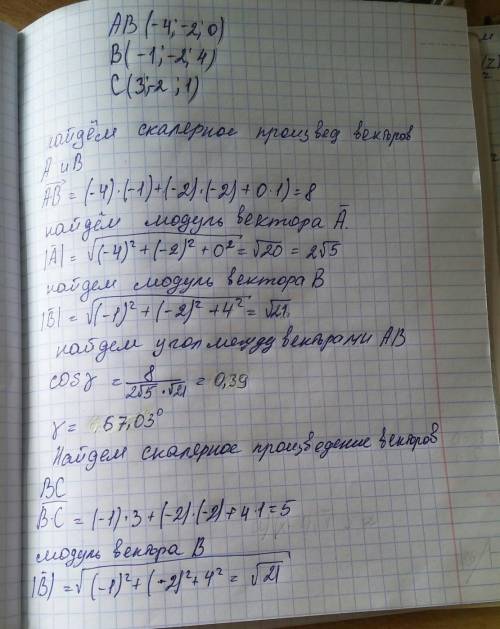 AB (-4; -2; 0)
B(-1; -2; 4)
C(3; -2; 1)
найдём скалерное произвед векторов
A и B
AB = (-4)·(-1)+(-2)·(-2)+0·1)=8
найдём модуль вектора A.
|A| = √(-4)²+(-2)²+0² = √20 = 2√5
найдем модуль вектора B
|B| = √(-1)²+(-2)²+4² = √21
найдем угол между векторами AB
cosγ = 8/2√5·√21 = 0,39
γ = 67,03°
Найдем скалерное произведение векторов
BC
B·C = (-1)·3+(-2)·(-2)+4·1=5
модуль вектора B
|B| = √(-1)²+(-2)²+4² = √21